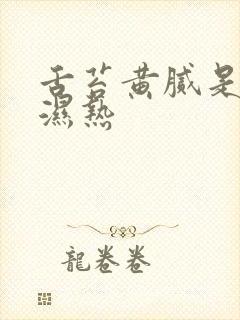 舌苔黄腻是
濕熱
龍卷卷